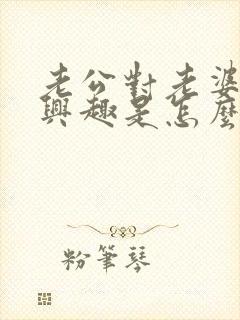 老公對老婆
興趣是怎麼
粉筆琴